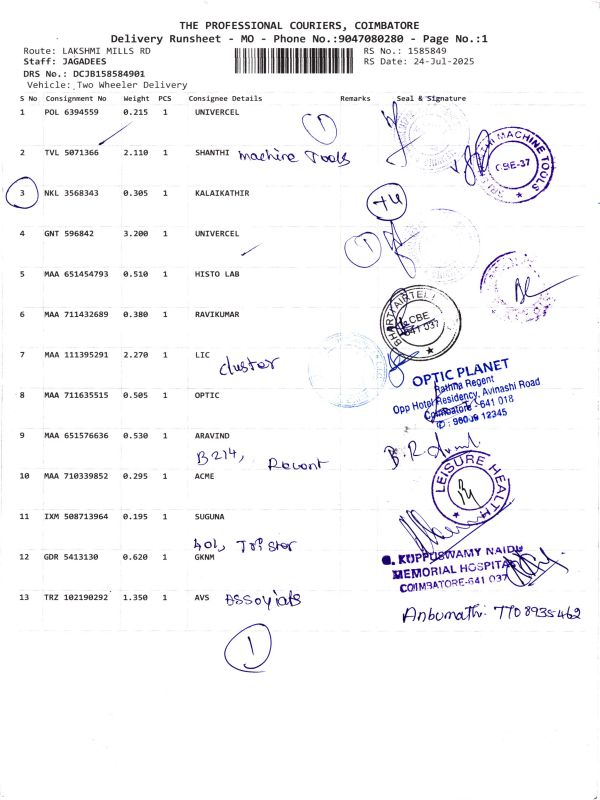 THE PROFESSIONAL COURIERS, COIMBATORE
Delivery Runsheet - MO - Phone No.:9047080280 - Page No.:1
Route: LAKSHMI MILLS RD RS No.: 1585849
Staff: JAGADEES RS Date: 24-Jul-2025
DRS No.: DCJB158584901
Vehicle: Two Wheeler Delivery
S No Consignment No Weight PCS Consignee Details Remarks Seal & Signature
1 POL 6394559 0.215 1 UNIVERCEL
1
2 TVL 5071366 2.110 1 SHANTHI machine Tools
MACHINE TOOLS
CBE-37
3 NKL 3568343 0.305 1 KALAIKATHIR
4 GNT 596842 3.200 1 UNIVERCEL
1
5 MAA 651454793 0.510 1 HISTO LAB
6 MAA 711432689 0.380 1 RAVIKUMAR
BHARTI AIRTEL
CBE
641 037
7 MAA 111395291 2.270 1 LIC
cluster
8 MAA 711635515 0.505 1 OPTIC
OPTIC PLANET
Rathna Regent
Opp Hotel Residency, Avinashi Road
Coimbatore - 641 018
9 MAA 651576636 0.530 1 ARAVIND
B214,
10 MAA 710339852 0.295 1 ACME
LEISURE HEALTH
11 IXM 508713964 0.195 1 SUGUNA
401,
12 GDR 5413130 0.620 1 GKNM
G. KUPPUSWAMY NAIDU
MEMORIAL HOSPITAL
COIMBATORE-641 037
13 TRZ 102190292 1.350 1 AVS
1